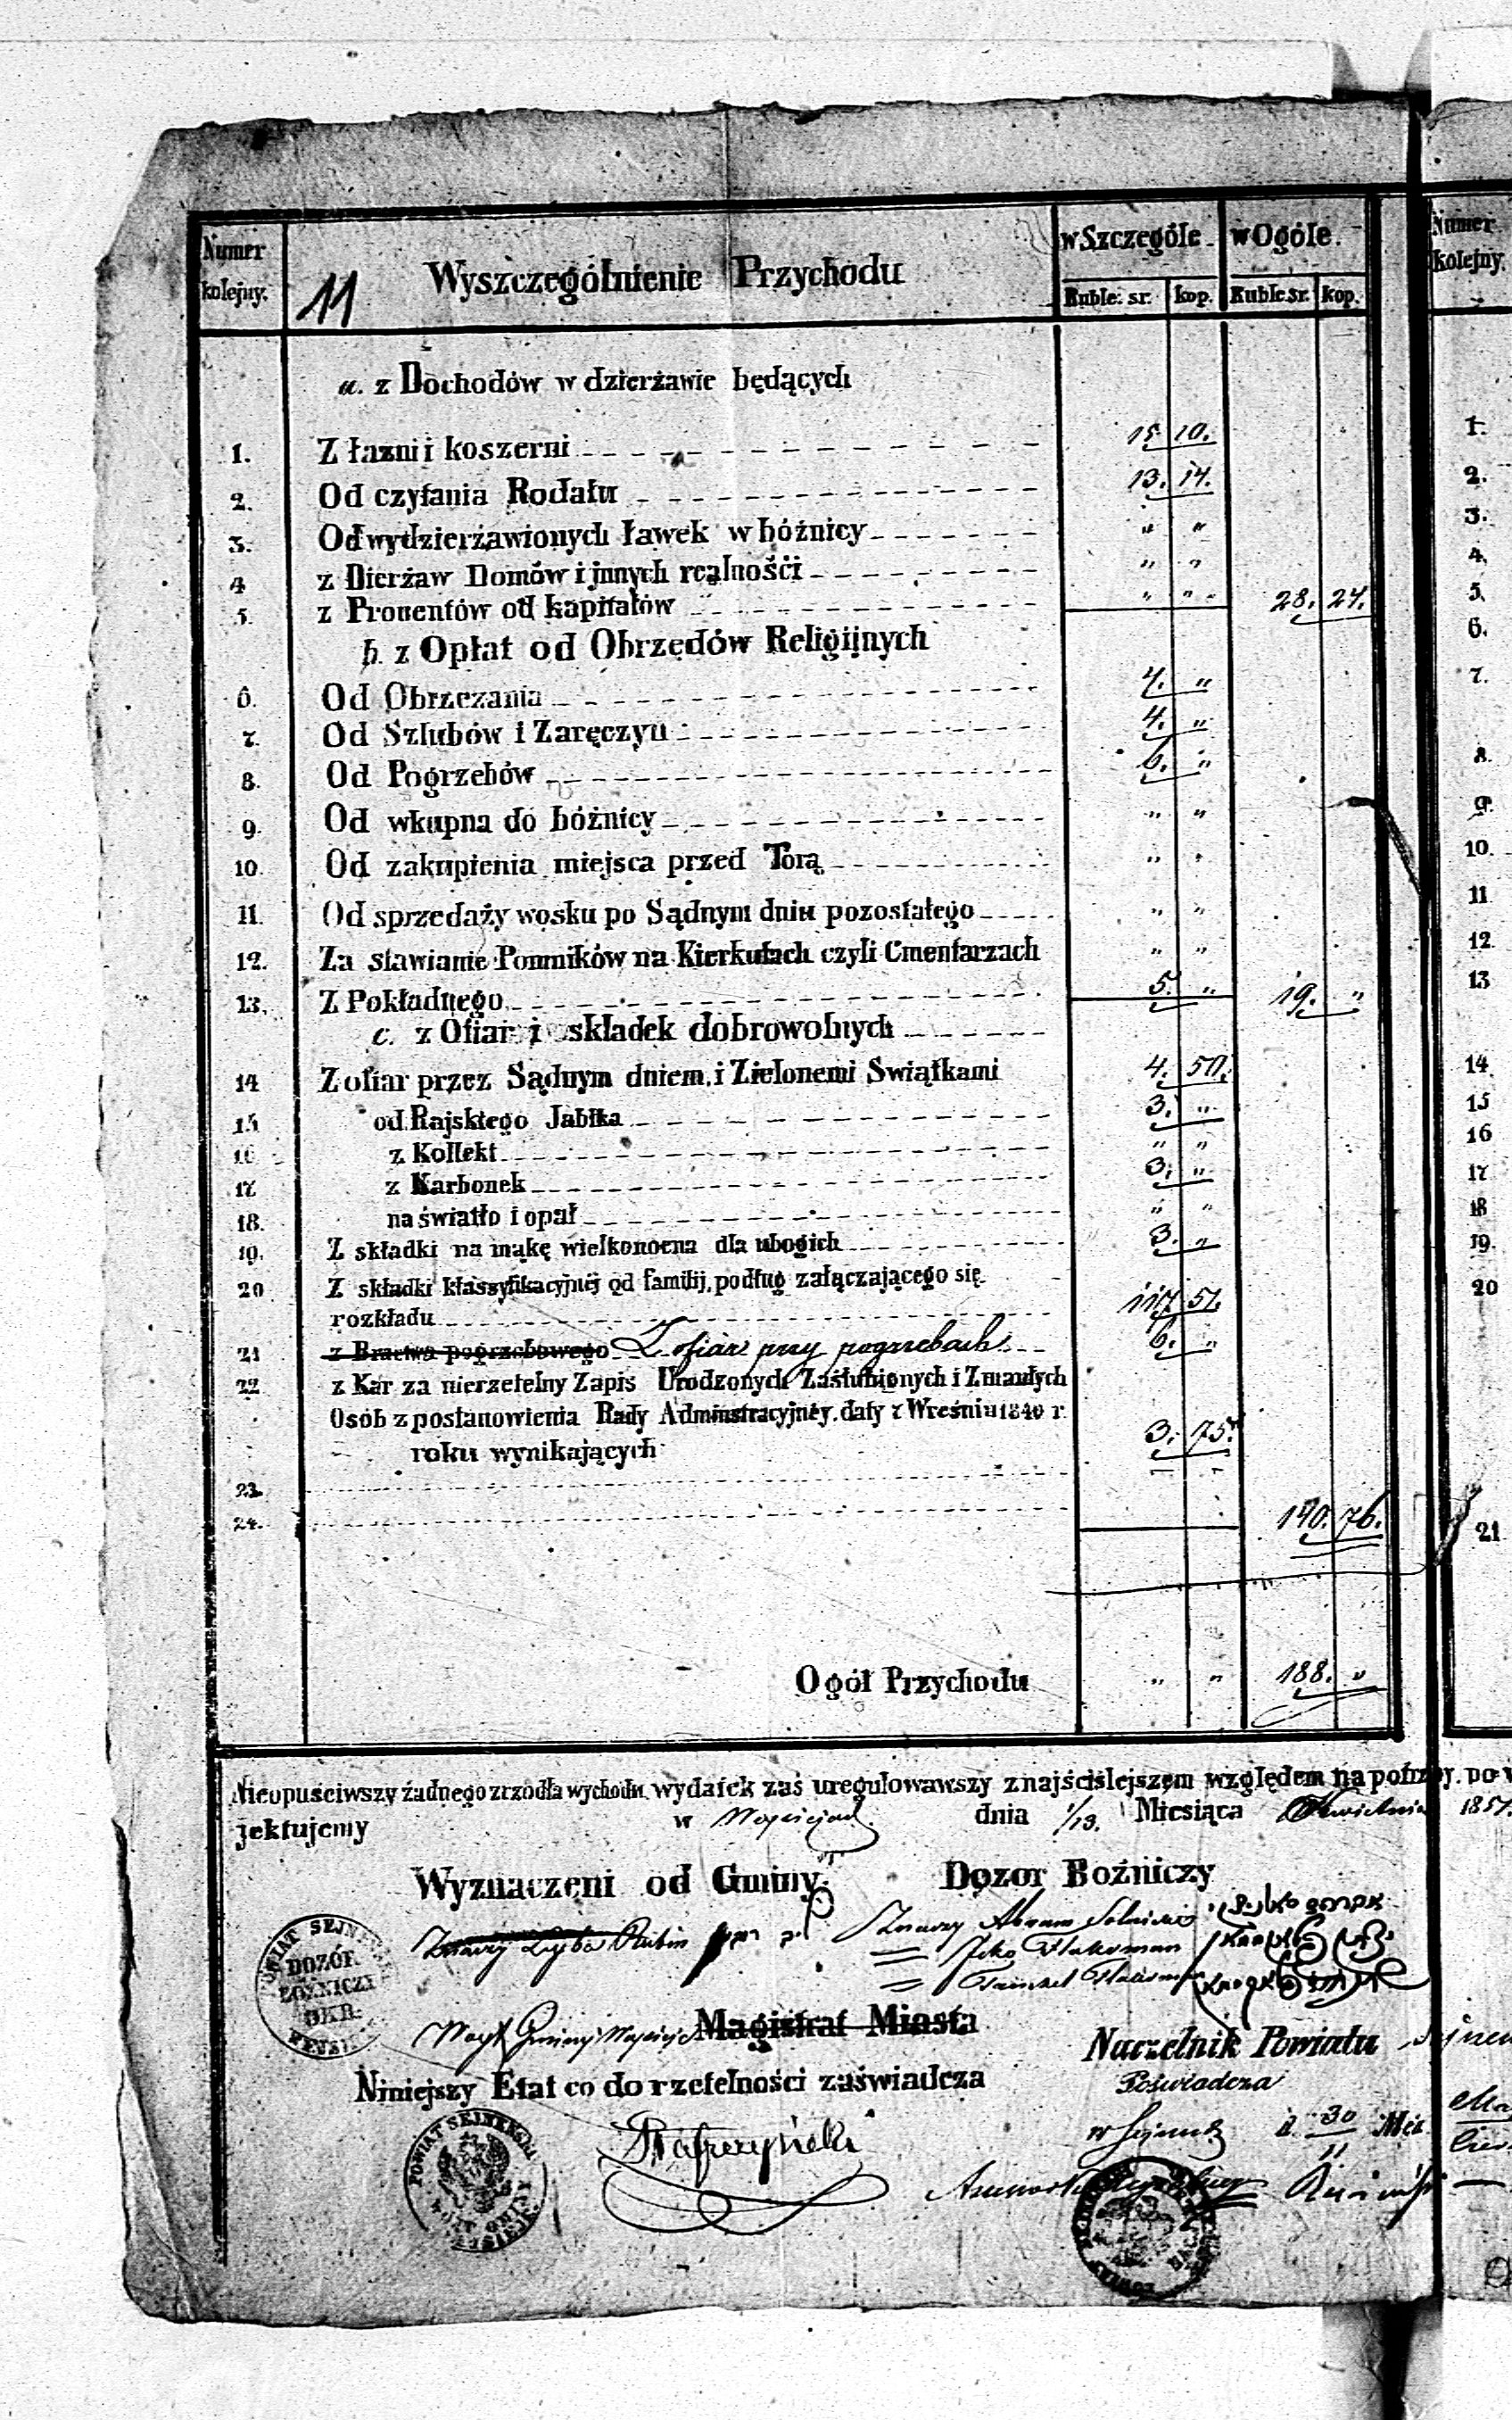 Numer kolejny. 11 Wyszczególnienie Przychodu w Szczególe. w Ogóle.
Ruble: sr. kop. Ruble sr. kop.
a. z Dochodów w dzierżawie będących
1. Z łazni i koszerni 15 10.
2. Od czytania Rodału 13. 14.
3. Od wydzierżawionych ławek w bóźnicy " "
4 z Dierżaw Domów i jnnych realnośći " "
5. z Procentów od kapitałów " " 28. 24.
b. z Opłat od Obrzędów Religijnych
6. Od Obrzezania 4. "
7. Od Szlubów i Zaręczyn 4. "
8. Od Pogrzebów 6. "
9. Od wkupna do bóźnicy " "
10. Od zakupienia miejsca przed Torą " "
11. Od sprzedaży wosku po Sądnym dniu pozostałego " "
12. Za stawianie Pomników na Kierkutach czyli Cmentarzach " "
13. Z Pokładnego 5. " 19. "
c. z Ofiar i składek dobrowolnych
14 Z ofiar przez Sądnym dniem, i Zielonemi Swiątkami 4. 50.
15 od Rajskiego Jabłka 3. "
16 z Kollekt " "
17 z Karbonek 3. "
18. na światło i opał " "
19. Z składki na mąkę wielkonocna dla ubogich 3. "
20 Z składki klassyfikacyjnéj od familij, podług załączającego się
rozkładu 117 51.
21 z Bractwa pogrzebowego Z ofiar przy pogrzebach 6. "
22 z Kar za nierzetelny Zapis Urodzonych Zaślubionych i Zmarłych
Osób z postanowienia Rady Adminstracyjnéy. daty z Wreśniu 1840 r.
roku wynikających 3. 75.
23.
24. 140. 76.
Ogół Przychodu " " 188. "
Nieopuściwszy żadnego zrzodła wychodu, wydatek zaś uregulowawszy z najściślejszem względem na potrzby. po
jektujemy w dnia 1/13. Miesiąca Kwietnia 1857.
Wyznaczeni od Gminy. Dozor Boźniczy
Leyba Rubin Abram
Magistrat Miasta
Wóyt Gminy
Naczelnik Powiatu
Niniejszy Etat co do rzetelności zaświadcza
Poświadcza
DOZÓR
POWIAT SEJNEŃSKI
30
11